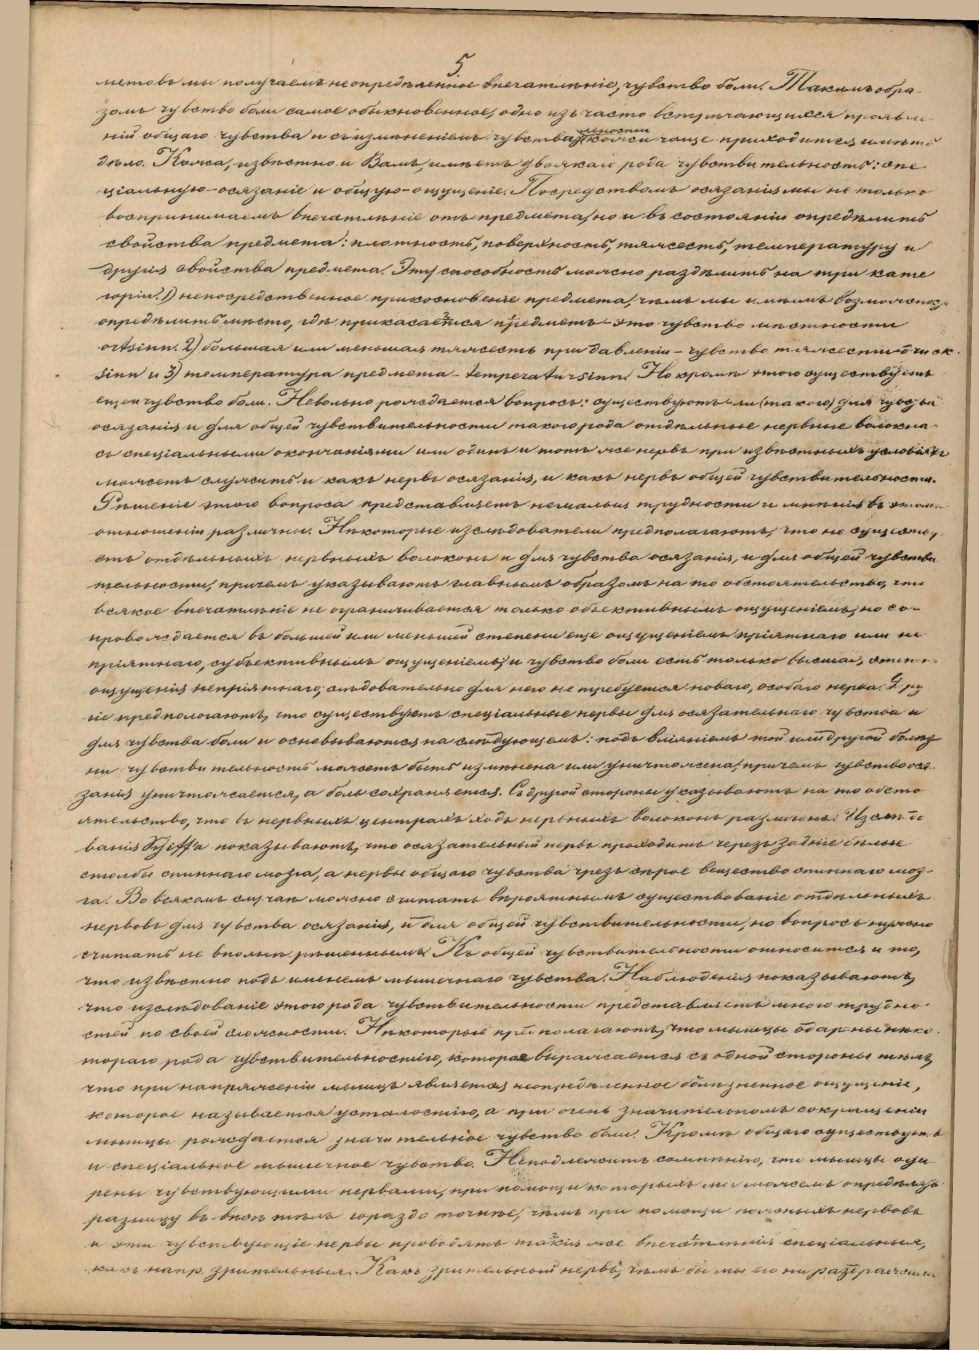 5
метовъ мы получаемъ неопредѣленное впечатлѣніе, чувство боли. Такимъ обра-
зомъ чувство боли самое обыкновенное, одно изъ часто встрѣчающихся проявле-
ній общаго чувства и съ измѣненіемъ чувствительности кожи чаще приходится имѣть
дѣло. Кожа, извѣстно и Вамъ, имѣетъ двоякаго рода чувствительность: спе
ціальную-осязаніе и общую-ощущеніе. Посредствомъ осязанія мы не только
воспринимаемъ впечатлѣніе отъ предмета, но и въ состояніи опредѣлить
свойства предмета: плотность, поверхность, тяжесть, температуру и
другія свойства предмета. Эту способность можно раздѣлить на три кате
горіи: 1) непосредственное прикосновеніе предмета, чѣмъ мы имѣемъ возможность
опредѣлить мѣсто, гдѣ прикасается предметъ - это чувство мѣстности
ortsinn. 2) большая или меньшая тяжесть при давленіи - чувство тяжести druck-
sinn и 3) температура предмета - temperatursinn. Но кромѣ этого существуетъ
еще и чувство боли. Невольно рождается вопросъ: существуютъ ли (такого) для чувства
осязанія и для общей чувствительности такого рода отдѣльные нервные волокна
съ спеціальными окончаніями или одинъ и тотъ же нервъ при извѣстныхъ условіяхъ
можетъ служить и какъ нервъ осязанія, и какъ нервъ общей чувствительности.
Рѣшеніе этого вопроса представляетъ немалыя трудности и мнѣнія въ этомъ
отношеніи различны. Нѣкоторые изслѣдователи предполагаютъ, что не существу-
етъ отдѣльныхъ нервныхъ волоконъ и для чувства осязанія, и для общей чувстви
тельности, причемъ указываютъ главнымъ образомъ на то обстоятельство, что
всякое впечатлѣніе не ограничивается только объективнымъ ощущеніемъ, но со-
провождается въ большей или меньшей степени еще ощущеніемъ пріятнаго или не
пріятнаго, субъективнымъ ощущеніемъ, и чувство боли есть только высшая степень
ощущенія непріятнаго; слѣдовательно для него не требуется новаго, особаго нерва. Дру
гіе предпологаютъ, что существуютъ спеціальные нервы для осязательнаго чувства и
для чувства боли и основываются на слѣдующемъ: подъ вліяніемъ той или другой болѣз
ни чувствительность можетъ быть измѣнена или уничтожена, причемъ чувство ося
занія уничтожается, а боль сохраняется. Съ другой стороны указываютъ на то обсто
ятельство, что въ нервныхъ центрахъ ходъ нервныхъ волоконъ различенъ. Изслѣдо
ванія Schiff'а показываютъ, что осязательный нервъ проходитъ черезъ задніе бѣлые
столбы спиннаго мозга, а нервы общаго чувства чрезъ сѣрое вещество спиннаго моз-
га. Во всякомъ случаѣ можно считать вѣроятнымъ существованіе отдѣльныхъ
нервовъ для чувства осязанія, и для общей чувствительности, но вопросъ нужно
считать не вполнѣ рѣшеннымъ. Къ общей чувствительности относится и то,
что извѣстно подъ именемъ мышечнаго чувства. Наблюденія показываютъ,
что изслѣдованіе этого рода чувствительности представляетъ много трудно-
стей по своей сложности. Нѣкоторые предполагаютъ, что мышцы одарены нѣко-
тораго рода чувствительностію, которая выражается съ одной стороны тѣмъ,
что при напряженіи мышцъ является неопредѣленное болѣзненное ощущеніе,
которое называется усталостію, а при очень значительномъ сокращеніи
мышцы рождается значительное чувство боли. Кромѣ общаго существуетъ
и спеціальное мышечное чувство. Неподлежитъ сомнѣнію, что мышцы ода
рены чувствующими нервами, при помощи которыхъ мы можемъ опредѣлять
разницу въ вѣсѣ тѣлъ гораздо точнѣе, чѣмъ при помощи кожныхъ нервовъ
и эти чувствующіе нервы проводятъ такія же впечатлѣнія спеціальныя,
какъ напр. зрительныя. Какъ зрительный нервъ, чѣмъ бы мы его ни раздражали